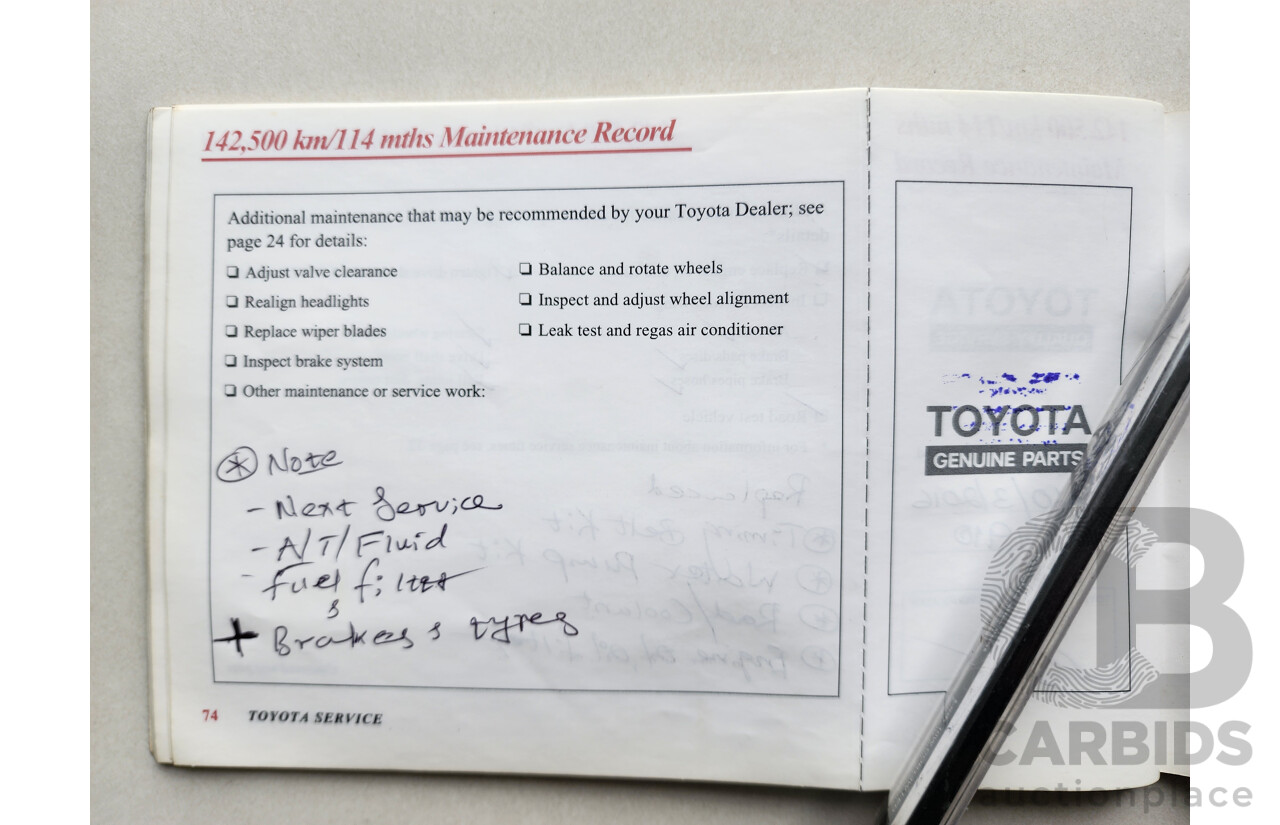 142,500 km/114 mths Maintenance Record
Additional maintenance that may be recommended by your Toyota Dealer; see
page 24 for details:
❏ Adjust valve clearance
❏ Realign headlights
❏ Replace wiper blades
❏ Inspect brake system
❏ Other maintenance or service work:
❏ Balance and rotate wheels
❏ Inspect and adjust wheel alignment
❏ Leak test and regas air conditioner
* Note
- Next Service
- A/T/Fluid
- fuel filter
&
+ Brakes & tyres
74 TOYOTA SERVICE
TOYOTA
GENUINE PARTS
CB
CARBIDS
auctionplace